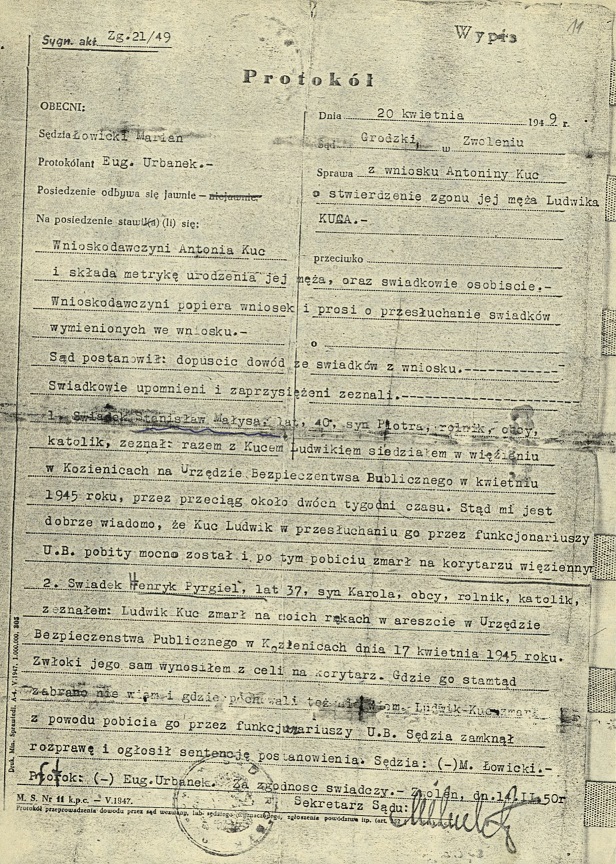 Sygn. akt. Zg.21/49
Wypis
11
Protokół
OBECNI:
Sędzia Łowicki Marian
Protokólant Eug. Urbanek.-
Posiedzenie odbywa się jawnie — niejawnie.
Na posiedzenie stawił(a) (li) się:
Dnia 20 kwietnia 1949 r.
Sąd Grodzki, w Zwoleniu
Sprawa z wniosku Antoniny Kuc
o stwierdzenie zgonu jej męża Ludwika
KUCA.-
przeciwko
o
Wnioskodawczyni Antonia Kuc
i składa metrykę urodzenia jej męża, oraz swiadkowie osobiscie.-
Wnioskodawczyni popiera wniosek i prosi o przesłuchanie swiadków
wymienionych we wniosku.-
Sąd postanowił: dopuscic dowód ze swiadków z wniosku.-
Swiadkowie upomnieni i zaprzysiężeni zeznali.-
1. Swiadek Stanisław Małysa, lat, 40, syn Piotra, rolnik, obcy,
katolik, zeznał: razem z Kucem Ludwikiem siedziałem w więzieniu
w Kozienicach na Urzędzie Bezpieczentwsa Bublicznego w kwietniu
1945 roku, przez przeciąg około dwóch tygodni czasu. Stąd mi jest
dobrze wiadomo, że Kuc Ludwik w przesłuchaniu go przez funkcjonariuszy
U.B. pobity mocno został i po tym pobiciu zmarł na korytarzu więziennym
2. Swiadek Henryk Pyrgiel, lat 37, syn Karola, obcy, rolnik, katolik,
zeznałem: Ludwik Kuc zmarł na moich rękach w areszcie w Urzędzie
Bezpieczenstwa Publicznego w Kozienicach dnia 17 kwietnia 1945 roku.
Zwłoki jego sam wynosiłem z celi na korytarz. Gdzie go stamtąd
zabrano nie wiem i gdzie pochowali też nie wiem. Ludwik Kuc zmarł
z powodu pobicia go przez funkcjonariuszy U.B. Sędzia zamknął
rozprawę i ogłosił sentencję postanowienia. Sędzia: (-)M. Łowicki.-
Protok: (-) Eug.Urbanek. Za zgodnosc swiadczy.- Zwoleń, dn. II.50r
Sekretarz Sądu:
M. S. Nr 11 k.p.c. — V.1947.
Protokół przeprowadzenia dowodu przez sąd wezwany, lub sędziego wyznaczonego, zgłoszenie powództwa itp. (art.
Druk. Min. Sprawiedl. A-4. V.1947. 1.000.000.